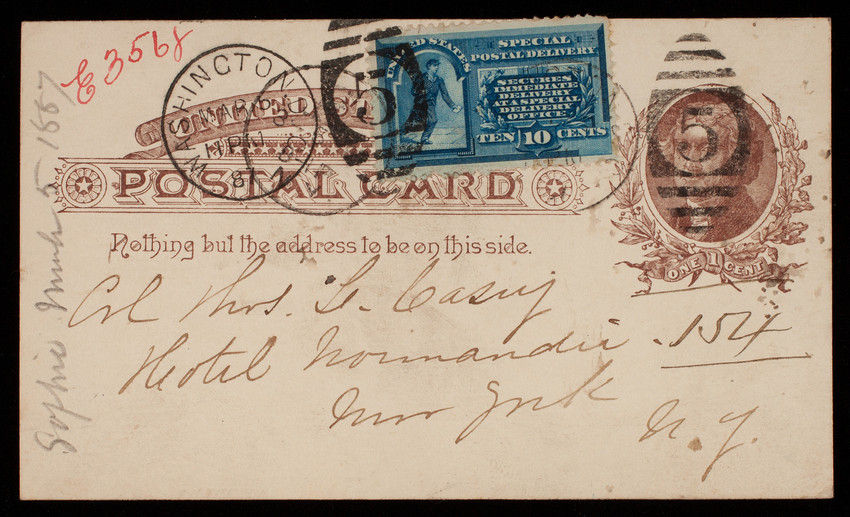 E 3568
WASHINGTON
MAR 5
11 PM
87
5
UNITED STATES
SPECIAL
POSTAL DELIVERY
SECURES
IMMEDIATE
DELIVERY
AT A SPECIAL
DELIVERY
OFFICE
TEN 10 CENTS
5
UNITED STATES
POSTAL CARD
ONE 1 CENT
Nothing but the address to be on this side.
Col Thos. L. Casey
Hotel Normandie . 154
New York
N. y.
Sophie March 5 1887